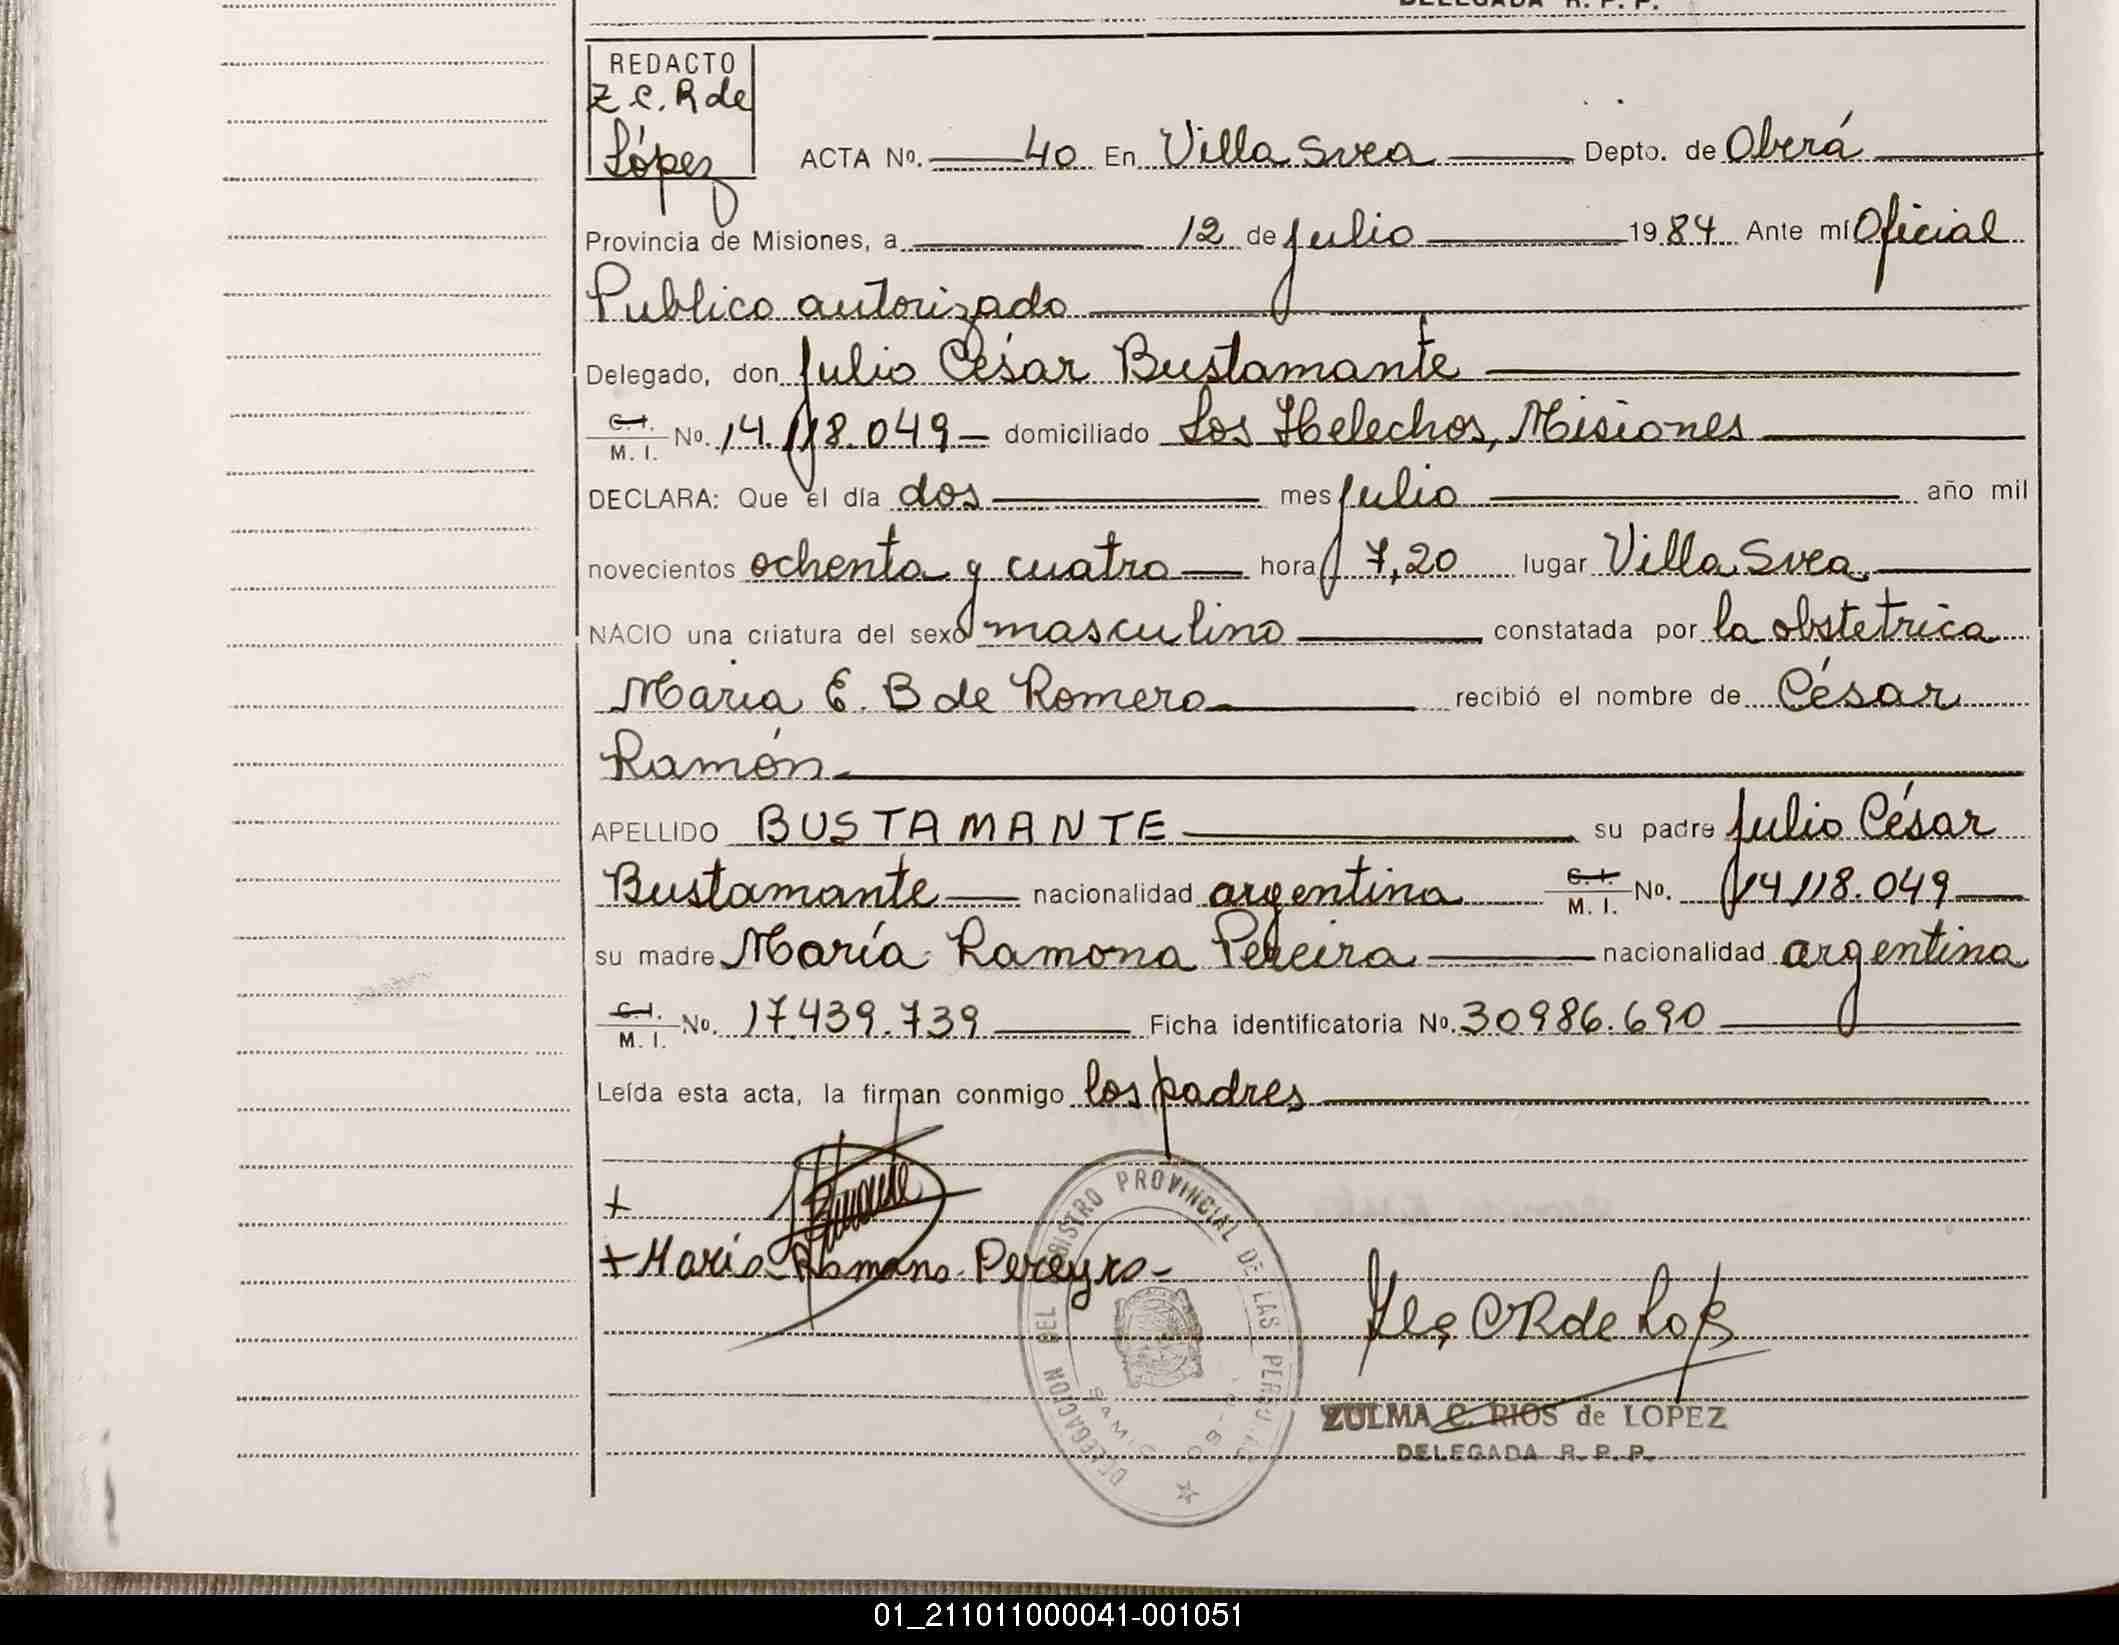 DELEGADA R. P. P.
REDACTO
Z. C. R de
López
ACTA No. 40 En Villa Svea Depto. de Oberá
Provincia de Misiones, a 12 de julio 1984 Ante mí Oficial
Publico autorizado
Delegado, don Julio César Bustamante
C. I. / M. I. No. 14.118.049 domiciliado Los Helechos, Misiones
DECLARA: Que el día dos mes julio año mil
novecientos ochenta y cuatro hora 7,20 lugar Villa Svea
NACIO una criatura del sexo masculino constatada por la obstetrica
Maria E. B de Romero recibió el nombre de César
Ramón
APELLIDO BUSTAMANTE su padre Julio César
Bustamante nacionalidad argentina C. I. / M. I. No. 14 118.049
su madre María Ramona Pereira nacionalidad argentina
C. I. / M. I. No. 17.439.739 Ficha identificatoria No. 30986.690
Leída esta acta, la firman conmigo los padres
+
+ María Ramona Pereyra
DELEGACION DEL REGISTRO PROVINCIAL DE LAS PERSONAS
ZULMA C. RIOS de LOPEZ
DELEGADA R. P. P.
01_211011000041-001051